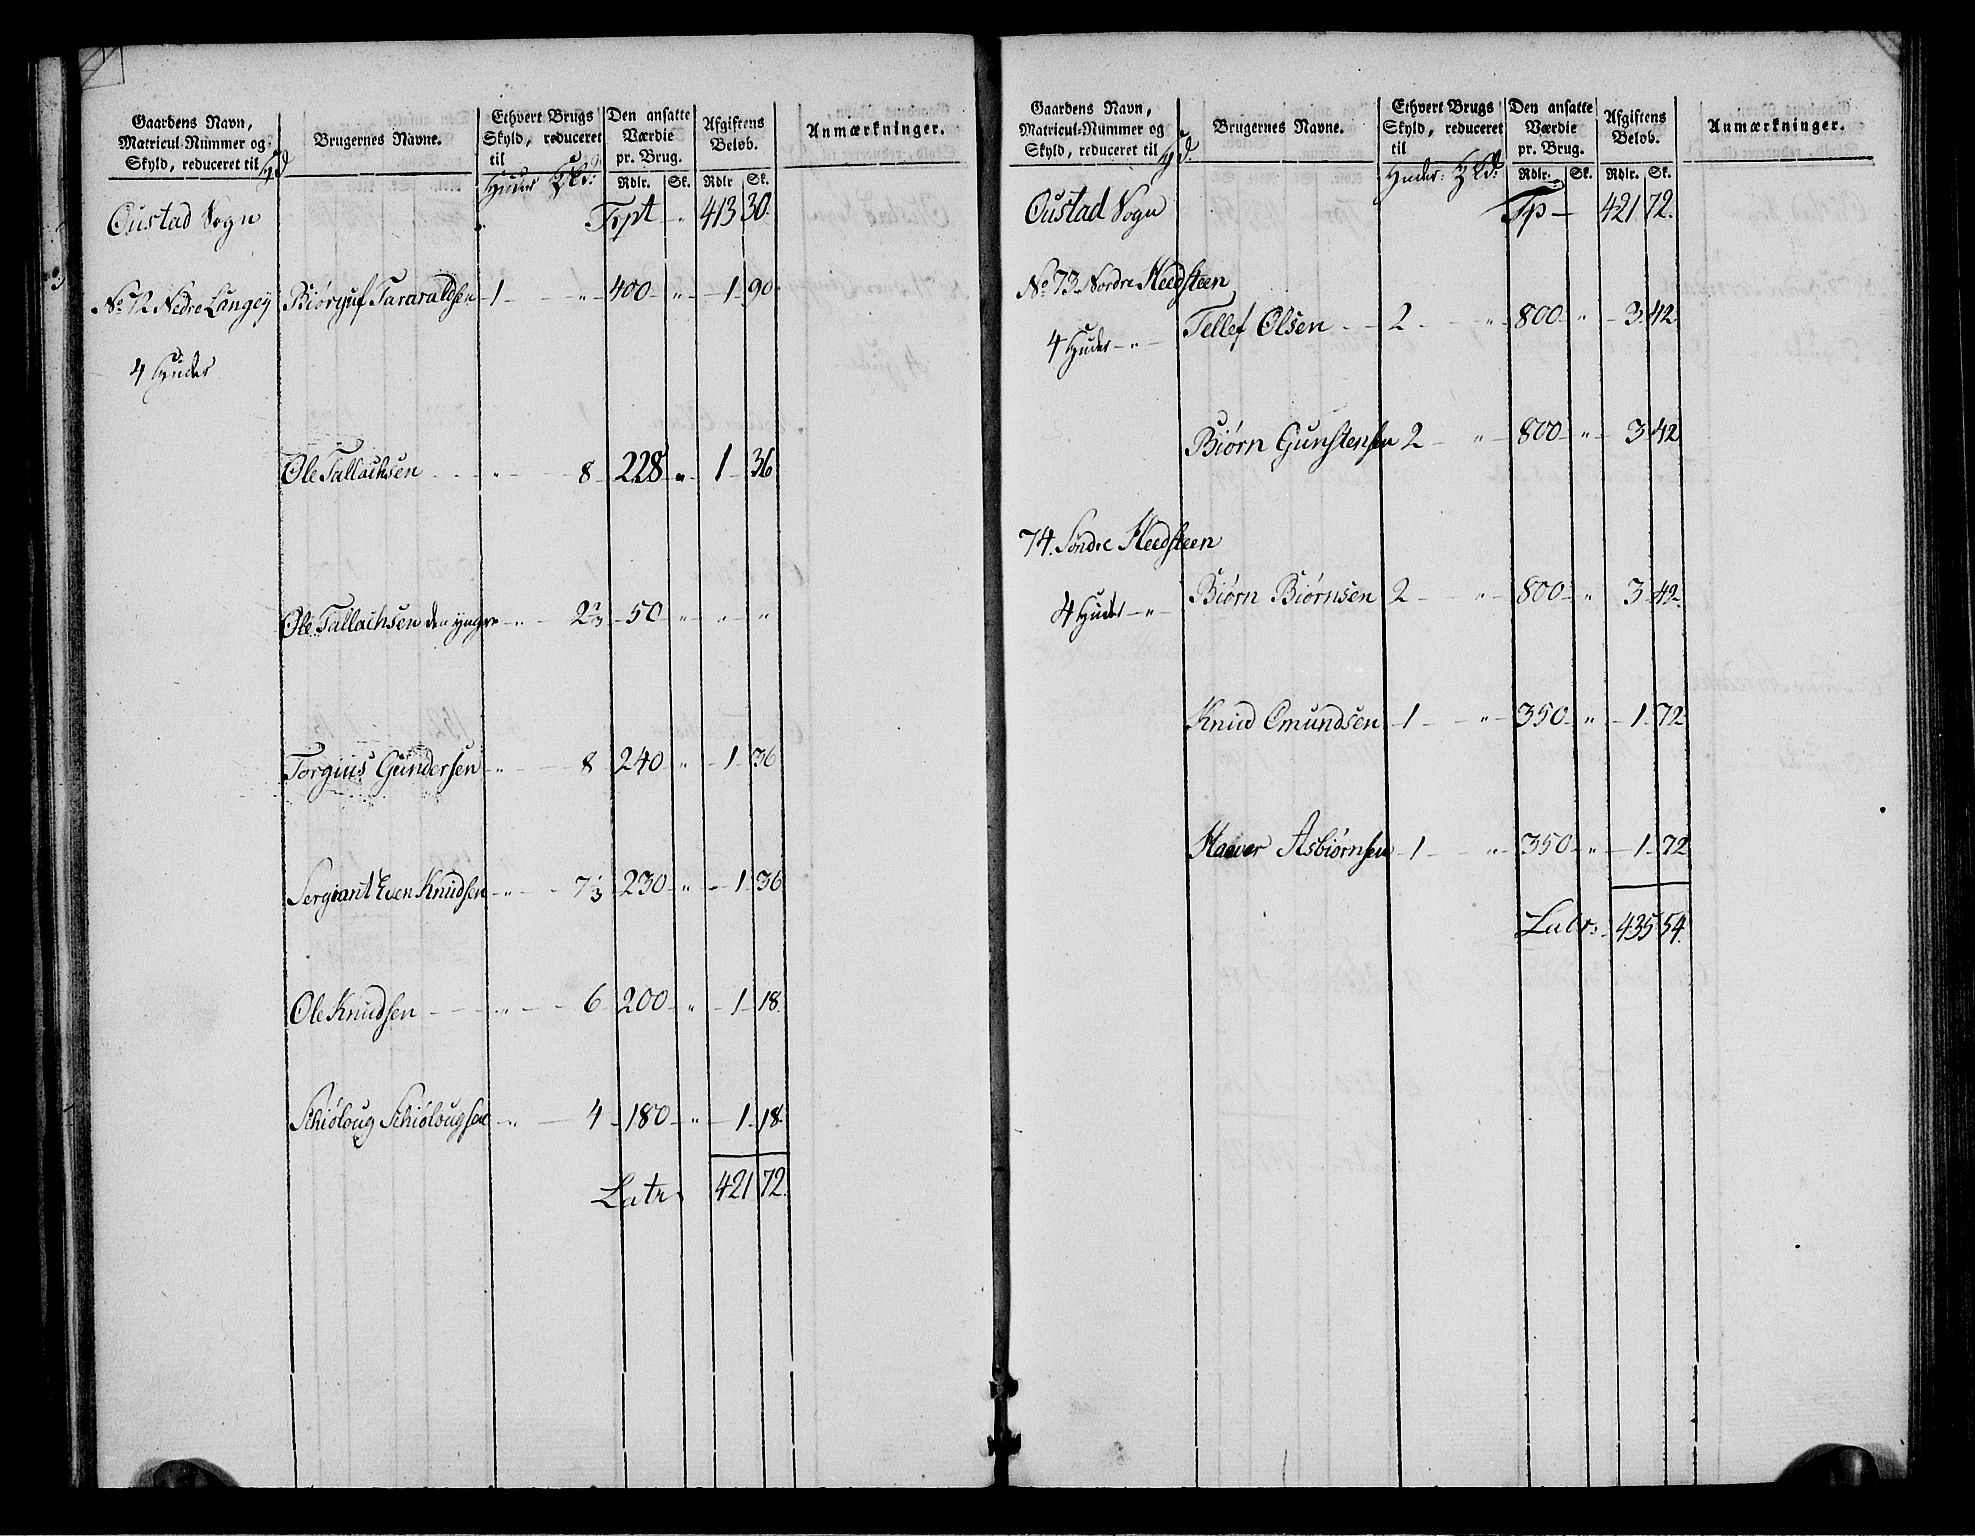 Gaardens Navn, Matricul-Nummer og Skyld, reduceret til Hd
Brugernes Navne.
Ethvert Brugs Skyld, reduceret til Huder
Den ansatte Værdie pr. Brug. Rdlr. Sk.
Afgiftens Beløb. Rdlr Sk.
Anmærkninger.
Oustad Sogn Trpt „ 413 30.
No 72 Nedre Langey Biørguf Tararaldsen 1 „ 400 „ 1 90
4 Huder
Ole Tallachsen „ 8 228 „ 1 36
Ole Tallachsen den yngre „ 2 2/3 50 „ „ „
Torgius Gundersen „ 8 240 „ 1 36
Sergiant Even Knudsen „ 7 1/3 230 „ 1 36
Ole Knudsen „ 6 200 „ 1 18
Schiøloug Schiølougsen „ 4 180 „ 1 18
Latr 421 72.
Gaardens Navn, Matricul-Nummer og Skyld, reduceret til Hd.
Brugernes Navne.
Ethvert Brugs Skyld, reduceret til Huder:
Den ansatte Værdie pr. Brug. Rdlr. Sk.
Afgiftens Beløb. Rdlr. Sk.
Anmærkninger.
Oustad Sogn Tp 421 72.
No 73 Nordre Heedsteen
4 Huder „ Tellef Olsen 2 „ 800 „ 3 42
Biørn Gunstensen 2 „ 800 „ 3 42
74. Søndre Heedsteen
4 Huder „ Biørn Biørnsen 2 „ 800 „ 3 42
Knud Omundsen 1 „ 350 „ 1 72
Haaver Asbiørnsen 1 „ 350 „ 1 72
Latr: 435 54.